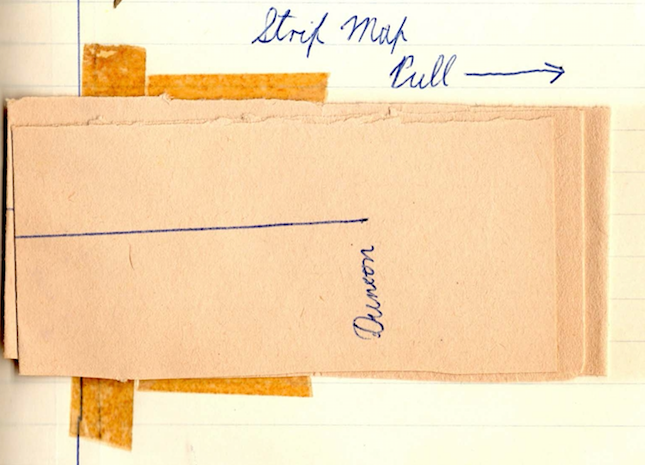 Strip Map
Pull
Dunoon